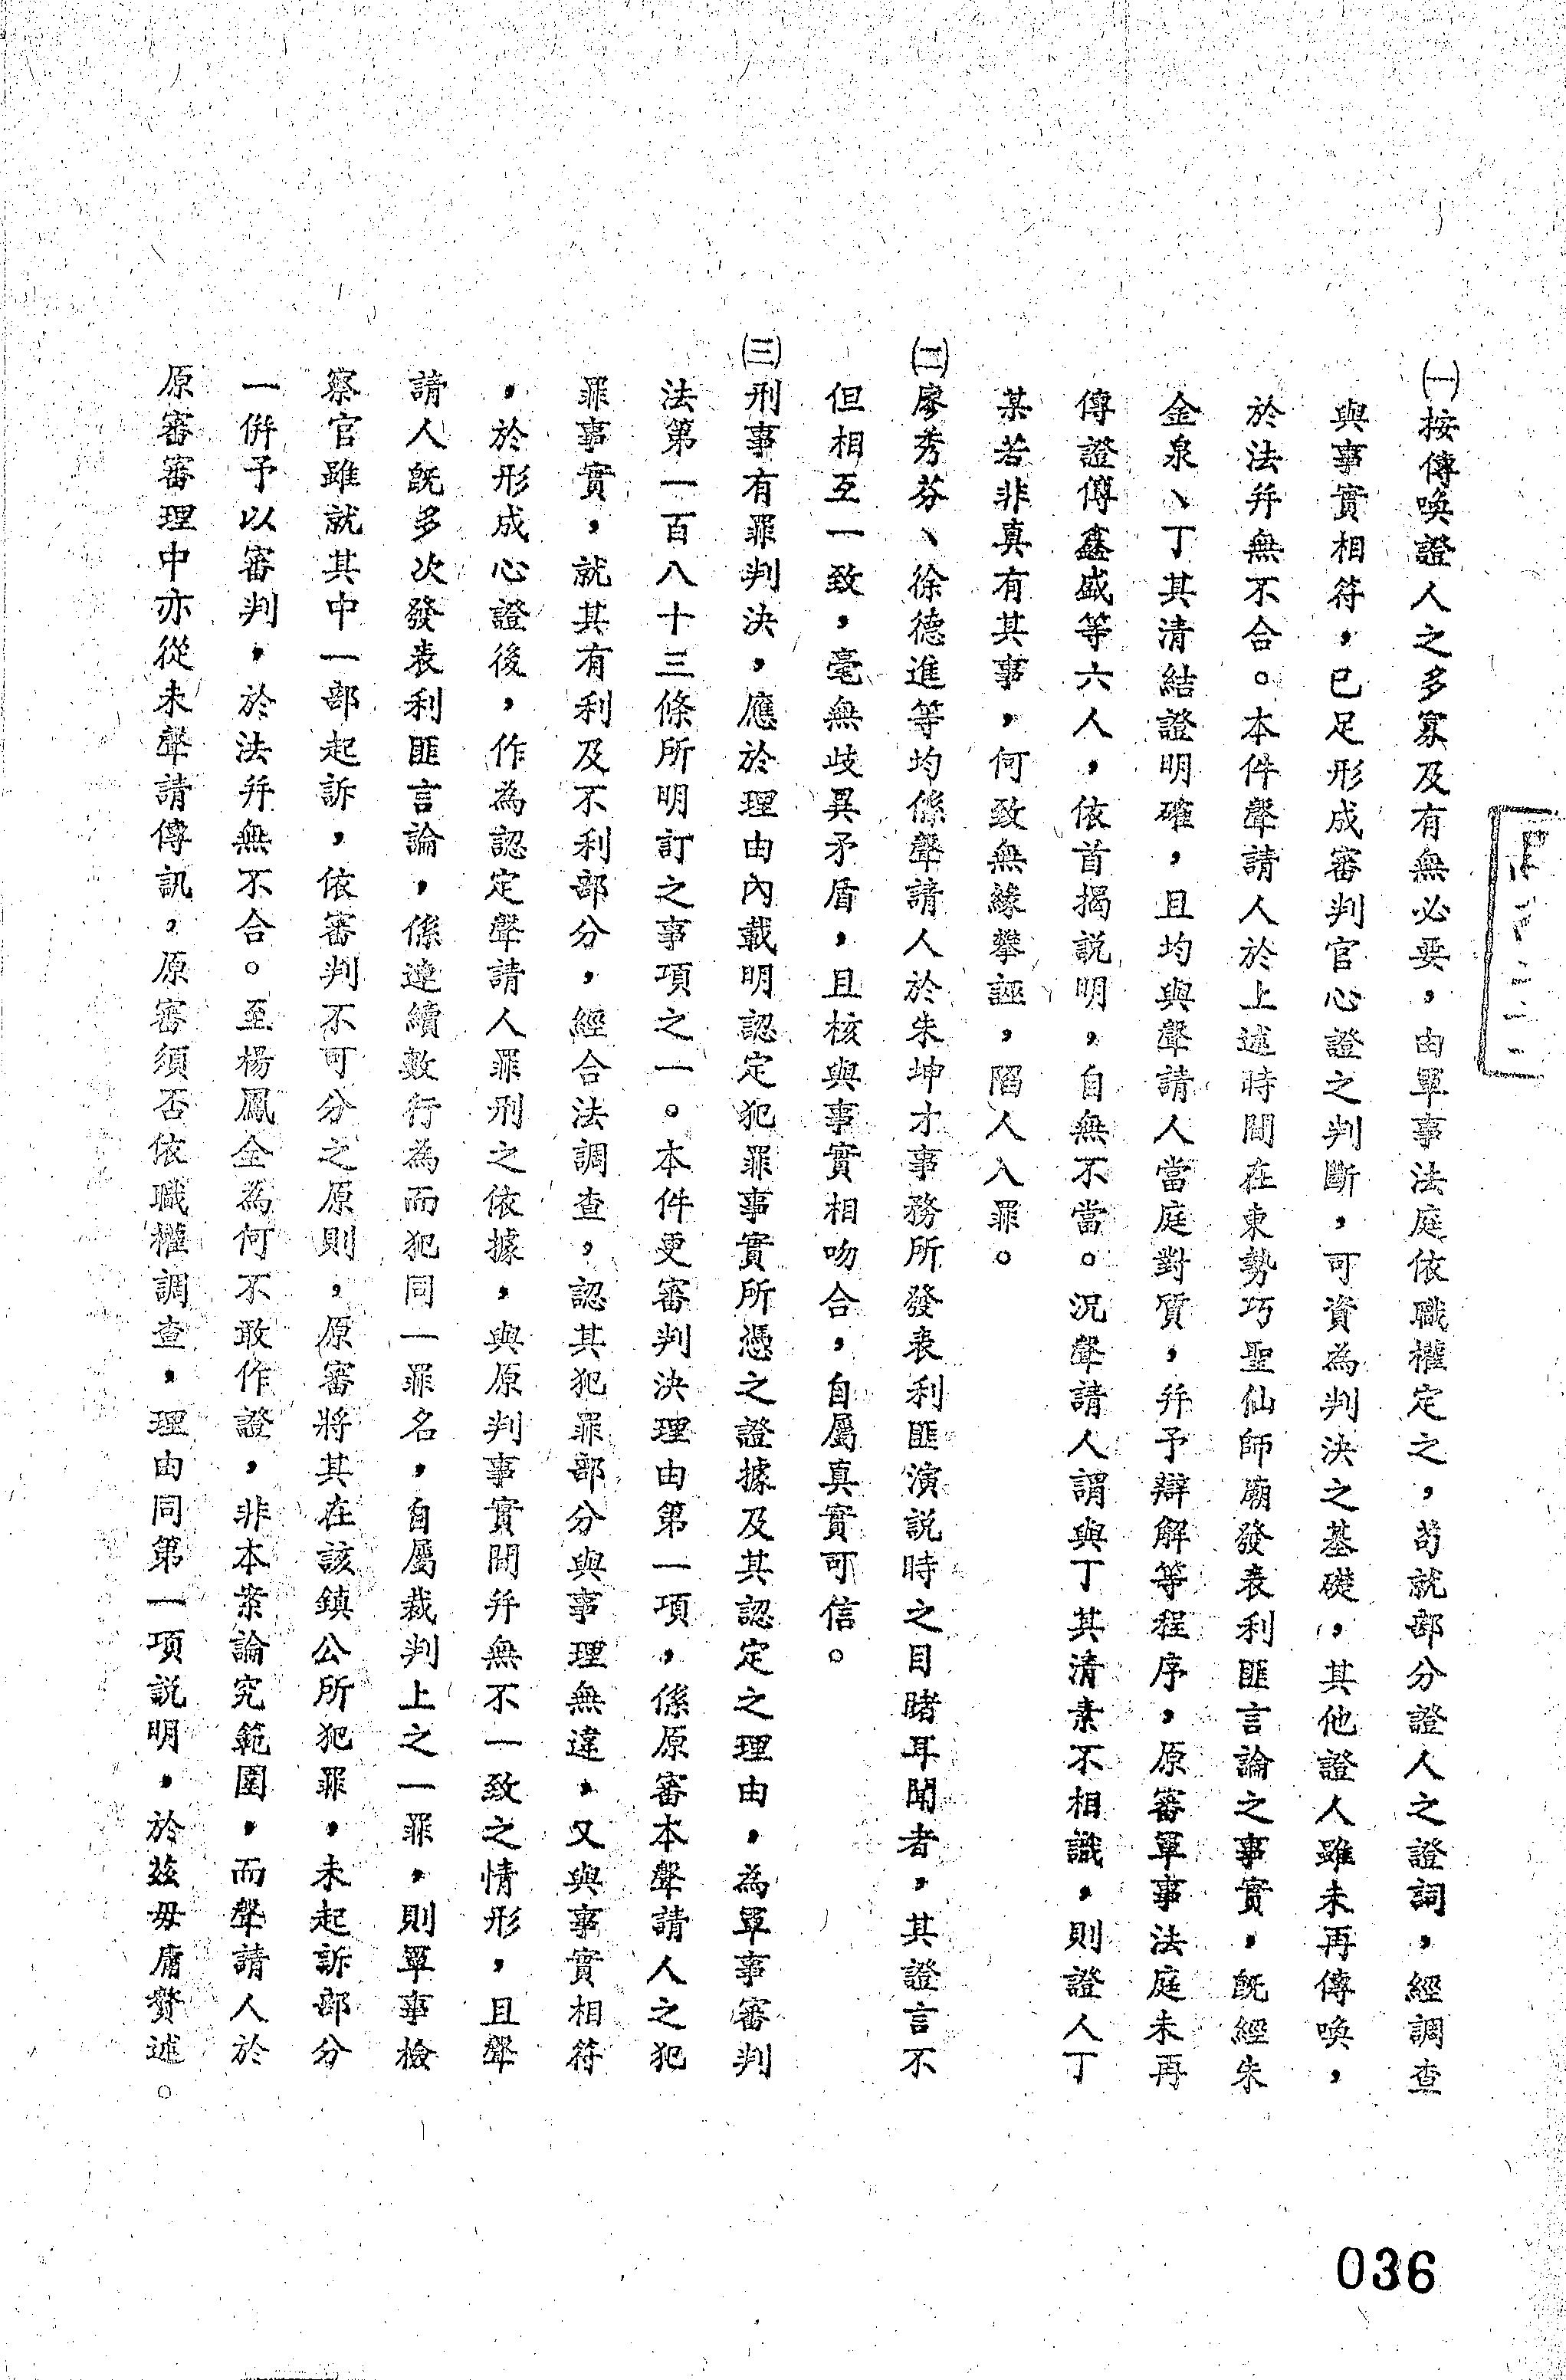 ㈠按傳喚證人之多寡及有無必要，由軍事法庭依職權定之，苟就部分證人之證詞，經調查
與事實相符，已足形成審判官心證之判斷，可資為判決之基礎，其他證人雖未再傳喚，
於法幷無不合。本件聲請人於上述時間在東勢巧聖仙師廟發表利匪言論之事實，既經朱
金泉、丁其清結證明確，且均與聲請人當庭對質，幷予辯解等程序，原審軍事法庭未再
傳證傅鑫盛等六人，依首揭説明，自無不當。況聲請人謂與丁其清素不相識，則證人丁
某若非真有其事，何致無緣攀誣，陷人入罪。
㈡廖秀芬、徐德進等均係聲請人於朱坤才事務所發表利匪演説時之目睹耳聞者，其證言不
但相互一致，毫無歧異矛盾，且核與事實相吻合，自屬真實可信。
㈢刑事有罪判決，應於理由內載明認定犯罪事實所憑之證據及其認定之理由，為軍事審判
法第一百八十三條所明訂之事項之一。本件更審判決理由第一項，係原審本聲請人之犯
罪事實，就其有利及不利部分，經合法調查，認其犯罪部分與事理無違，又與事實相符
，於形成心證後，作為認定聲請人罪刑之依據，與原判事實間幷無不一致之情形，且聲
請人既多次發表利匪言論，係連續數行為而犯同一罪名，自屬裁判上之一罪，則軍事檢
察官雖就其中一部起訴，依審判不可分之原則，原審將其在該鎮公所犯罪，未起訴部分
一併予以審判，於法幷無不合。至楊鳳全為何不敢作證，非本案論究範圍，而聲請人於
原審審理中亦從未聲請傳訊，原審須否依職權調查，理由同第一項説明，於茲毋庸贅述。
036